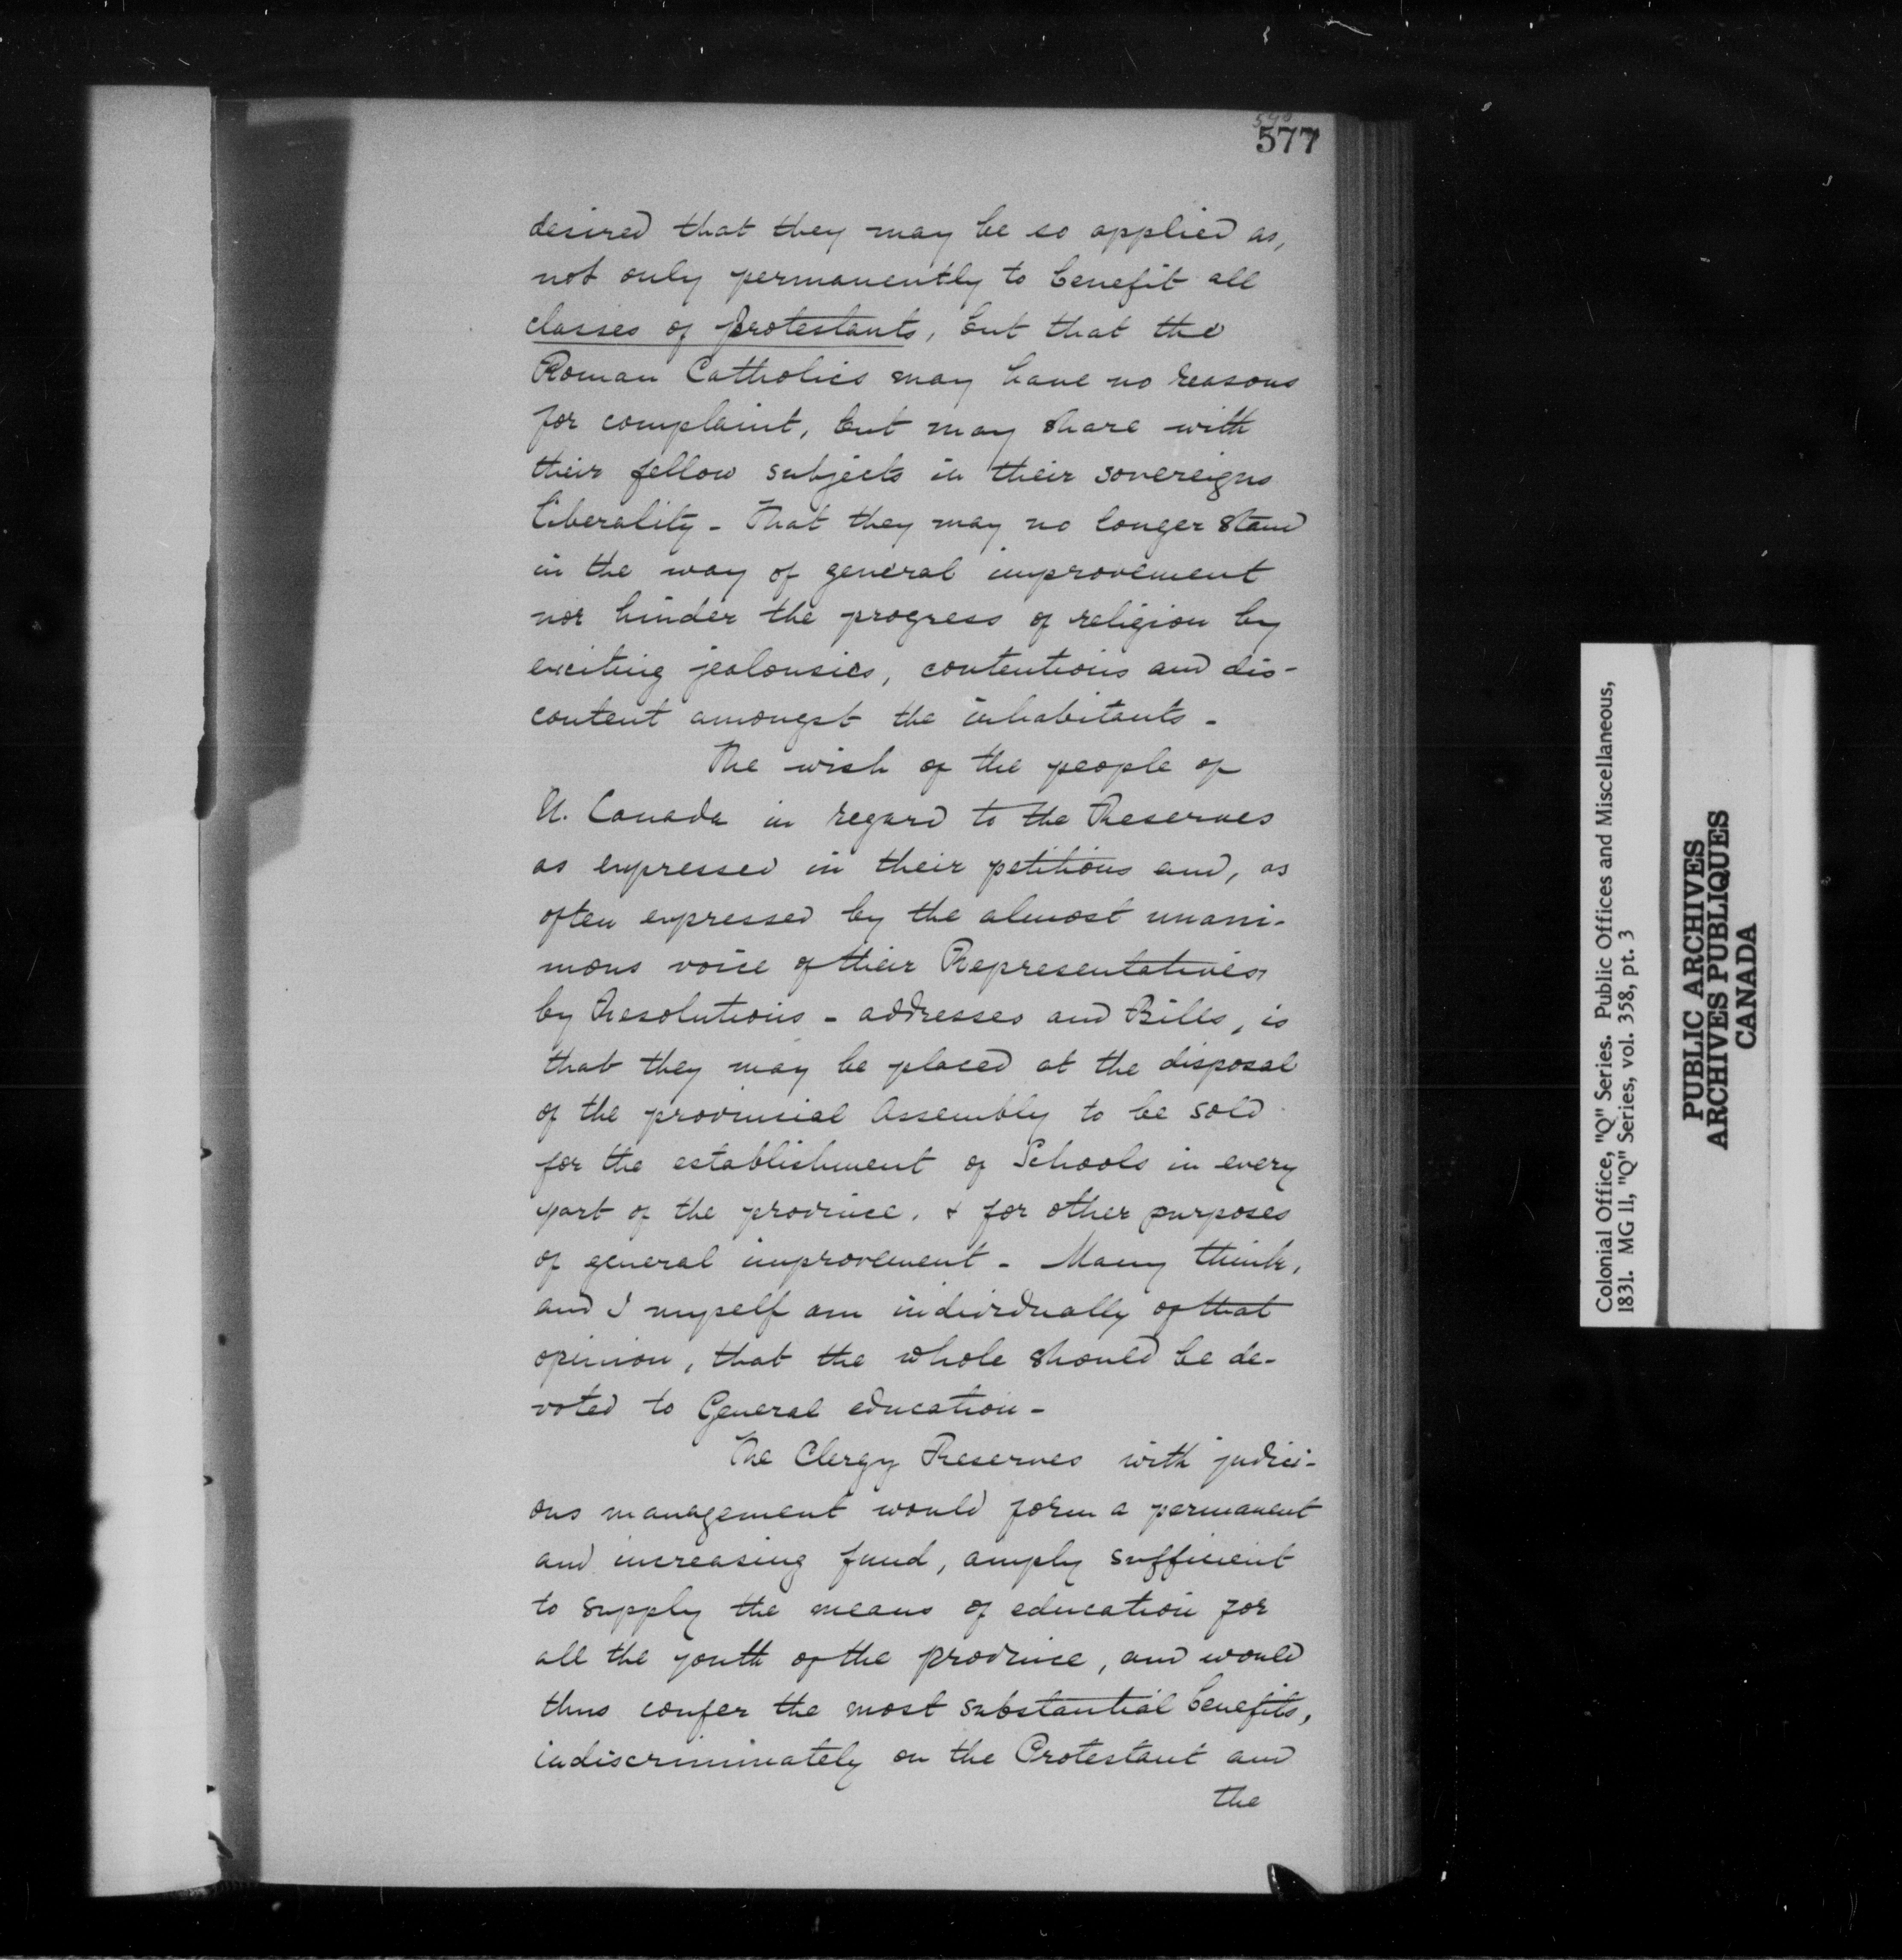 577
desired that they may be so applied as,
not only permanently to benefit all
classes of protestants, but that the
Roman Catholics may have no reasons
for complaint, but may share with
their fellow subjects in their sovereigns
liberality - That they may no longer stand
in the way of general improvement
nor hinder the progress of religion by
exciting jealousies, contentions and dis-
content amongst the inhabitants -
The wish of the people of
U. Canada in regard to the Reserves
as expressed in their petitions and, as
often expressed by the almost unani-
mous voice of their Representatives,
by Resolutions - addresses and Bills, is
that they may be placed at the disposal
of the provincial Assembly to be sold
for the establishment of Schools in every
part of the province, & for other purposes
of general improvement - Many think,
and I myself am individually of that
opinion, that the whole should be de-
voted to General education -
The Clergy Reserves with judici-
ous management would form a permanent
and increasing fund, amply sufficient
to supply the means of education for
all the youth of the province, and would
thus confer the most substantial benefits,
indiscriminately on the Protestant and
the
Colonial Office, "Q" Series. Public Offices and Miscellaneous,
1831. MG 11, "Q" Series, vol. 358, pt. 3
PUBLIC ARCHIVES
ARCHIVES PUBLIQUES
CANADA